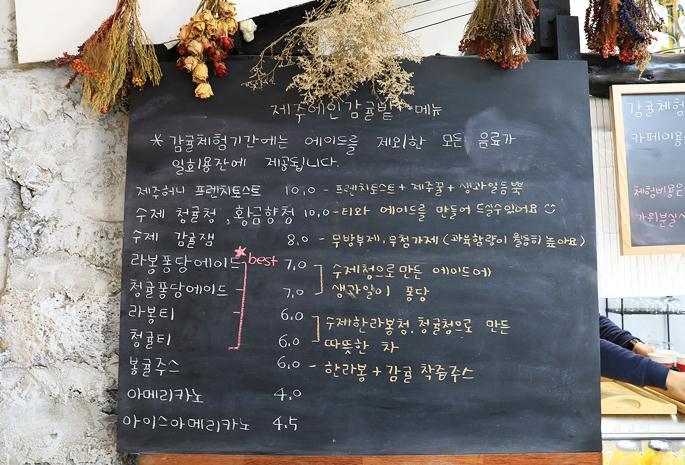 제주에인감귤밭 메뉴
* 감귤체험기간에는 에이드를 제외한 모든 음료가
일회용잔에 제공됩니다.
제주허니 프렌치토스트 10.0 - 프렌치토스트 + 제주꿀 + 생과일듬뿍
수제 청귤청, 황금향청 10.0 - 티와 에이드를 만들어 드실수있어요
수제 감귤잼 8.0 - 무방부제, 무첨가제 (과육함량이 월등히 높아요)
라봉퐁당에이드 best 7.0 수제청으로 만든 에이드에
청귤퐁당에이드 7.0 생과일이 퐁당
라봉티 6.0 수제한라봉청, 청귤청으로 만든
청귤티 6.0 따뜻한 차
봉귤주스 6.0 - 한라봉 + 감귤 착즙주스
아메리카노 4.0
아이스아메리카노 4.5
감귤체험
카페이용
체험비용은
가위분실시